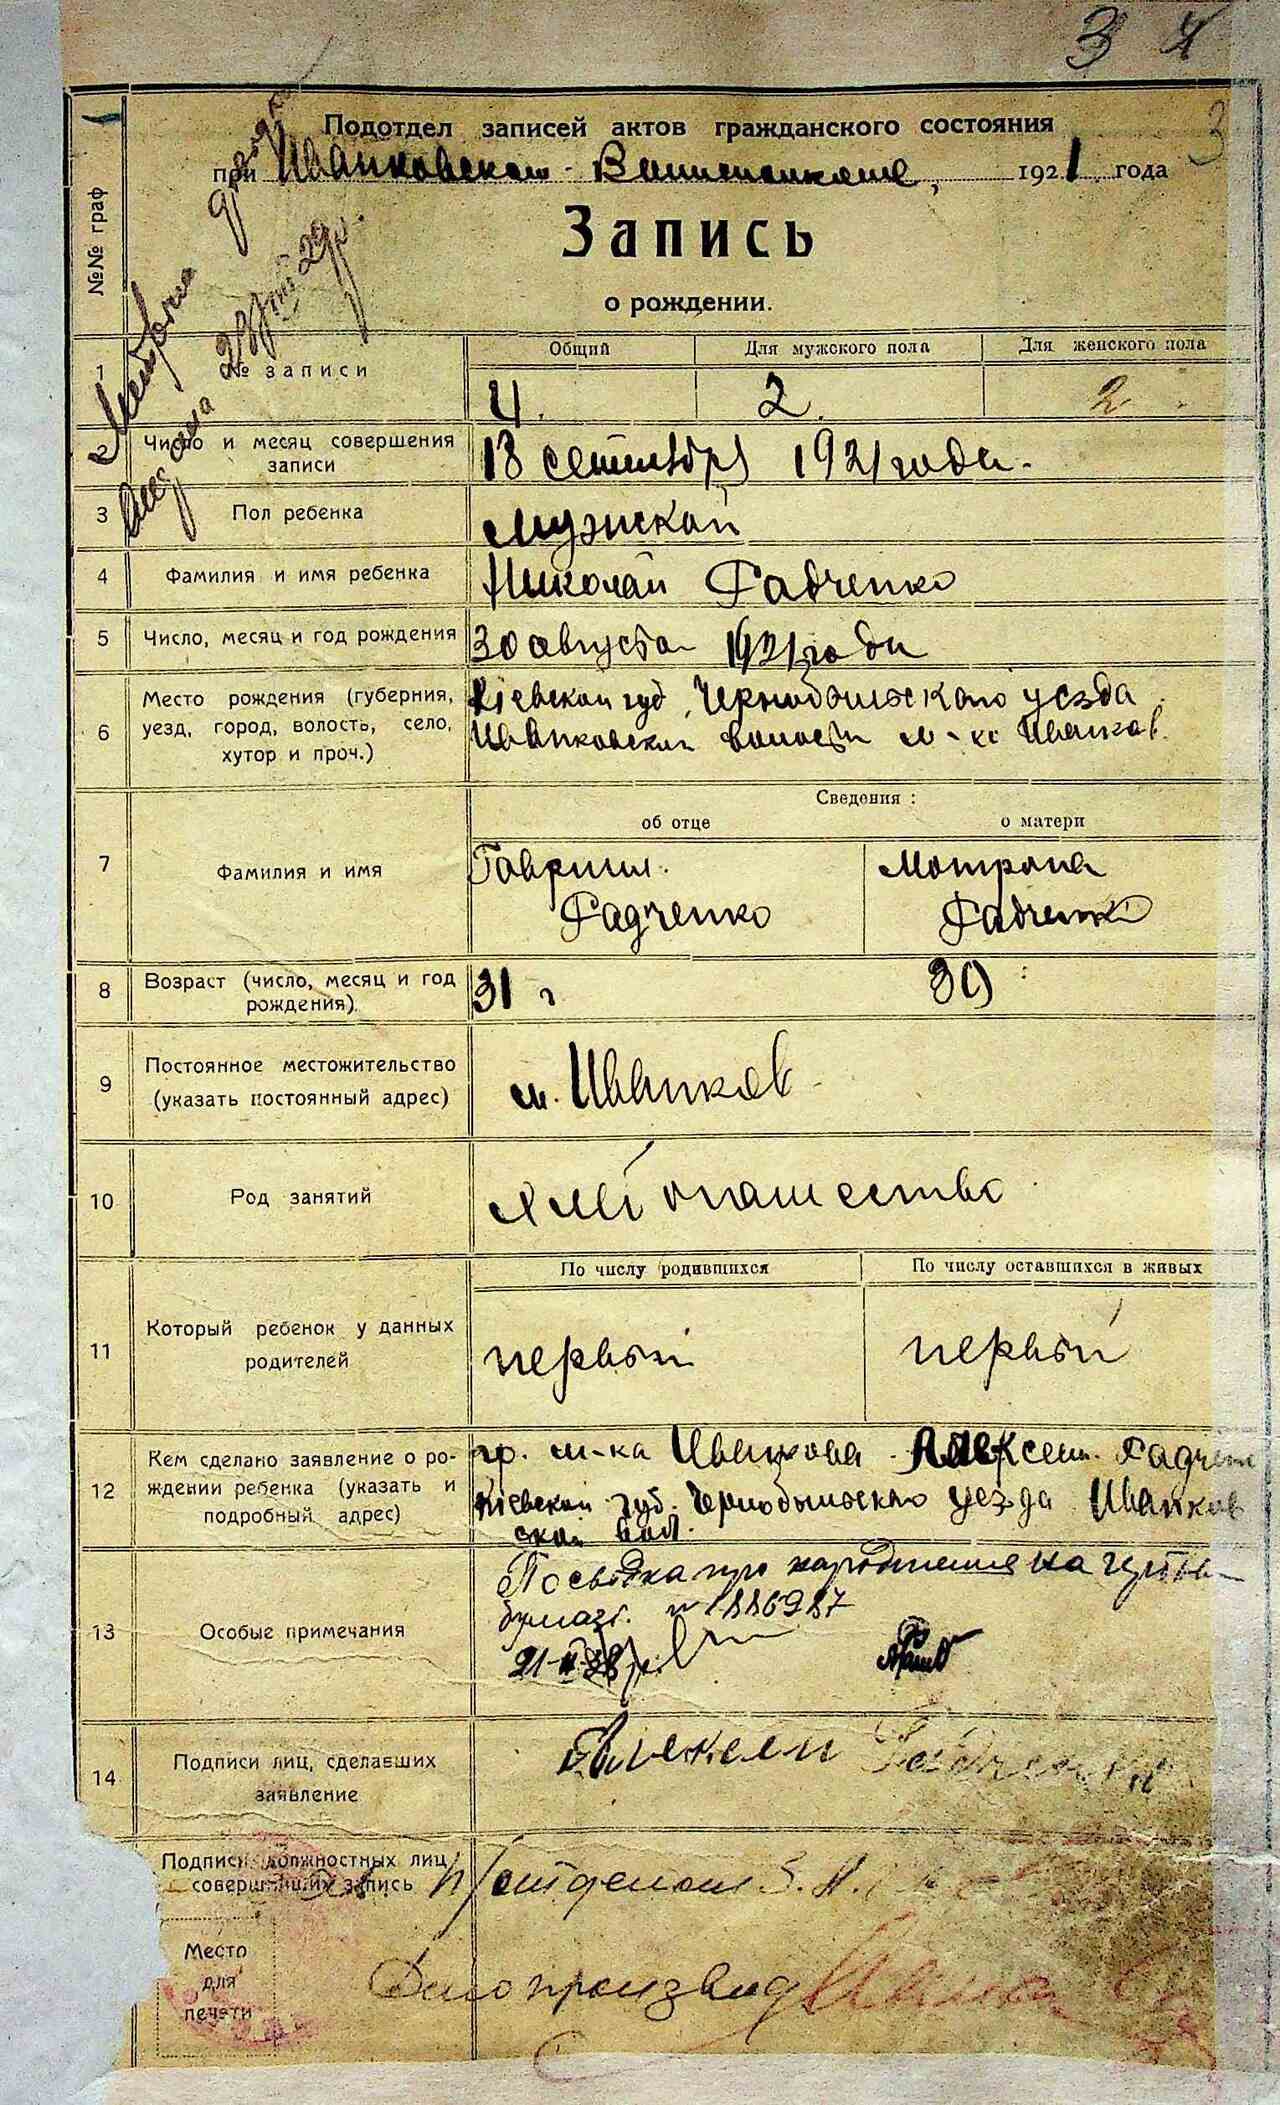 3 4
3
Подотдел записей актов гражданского состояния
при Иванковском Волисполкоме, 1921 года
Запись
о рождении.
№№ граф
1
№ записи
Общий
Для мужского пола
Для женского пола
4.
2.
2
2
Число и месяц совершения записи
18 сентября 1921 года.
3
Пол ребенка
Мужской
4
Фамилия и имя ребенка
Николай Радченко
5
Число, месяц и год рождения
30 августа 1921 года
6
Место рождения (губерния,
уезд, город, волость, село,
хутор и проч.)
Кіевской губ. Чернобыльского уезда
Иванковской волости м-ко Иванков.
Сведения :
об отце
о матери
7
Фамилия и имя
Гавриил
Радченко
Мотрона
Радченко
8
Возраст (число, месяц и год
рождения).
31 г
30
9
Постоянное местожительство
(указать постоянный адрес)
м. Иванков
10
Род занятий
хлебопашество
По числу родившихся
По числу оставшихся в живых
11
Который ребенок у данных
родителей
первый
первый
12
Кем сделано заявление о ро-
ждении ребенка (указать и
подробный адрес)
гр. м-ка Иванкова Алексей Радченко
Кіевской губ. Чернобыльского уезда Иванков
ской вол.
13
Особые примечания
Посвідка про народження на
№ 1886987
14
Подписи лиц, сделавших
заявление
Алексей Радченко
Подписи должностных лиц,
совершивших запись
Место
для
печати
Делопроизвод